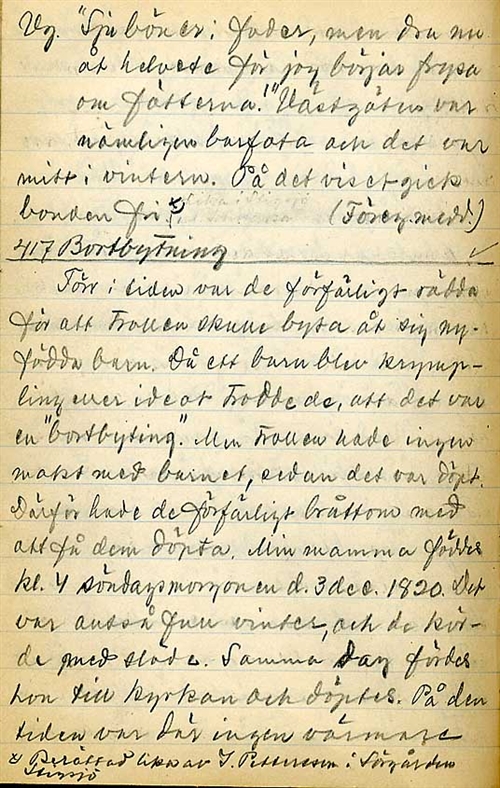 Vg. "Sju böner i foder, men dra nu
åt helvete för jag börjar frysa
om fötterna!" Västgöten var
nämligen barfota och det var
mitt i vintern. På det viset gick
bonden fri x) (Föreg. medd.)
417 Bortbytning
Förr i tiden var de förfärligt rädda
för att trollen skulle byta åt sig ny-
födda barn. Då ett barn blev krymp-
ling eller ideot trodde de, att det var
en "bortbyting". Men trollen hade ingen
makt med barnet, sedan det var döpt.
Därför hade de förfärligt bråttom med
att få dem döpta. Min mamma föddes
kl. 4 söndagsmorgonen d. 3 dec. 1820. Det
var också full vinter, och de kör-
de med släde. Samma dag fördes
hon till kyrkan och döptes. På den
tiden var där ingen värmare
x) Berättad lika av J. Pettersson i Sörgården
Stigsjö